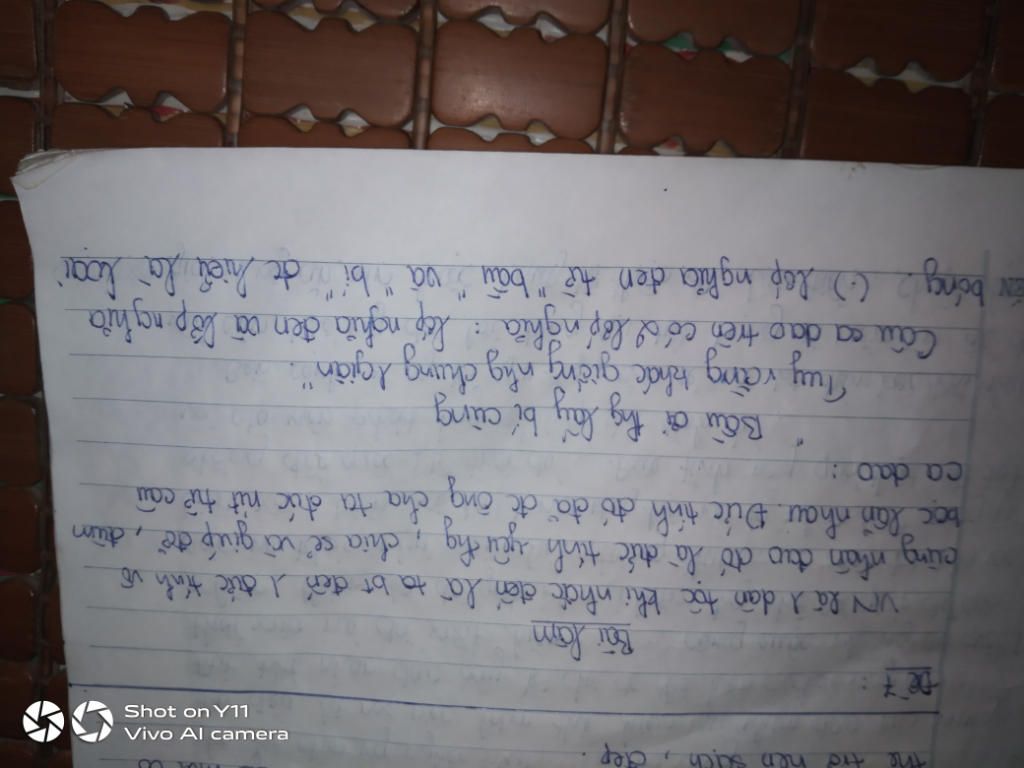 thể trở nên sạch, đẹp.
Đề 7:
Bài làm
VN là 1 dân tộc khi nhắc đến là ta bt đến 1 đức tính vô
cùng nhân đạo đó là đức tính yêu thg, chia sẻ và giúp đỡ, đùm
bọc lẫn nhau. Đức tính đó đã đc ông cha ta đúc rút từ câu
ca dao:
"Bầu ơi thg lấy bí cùng
Tuy rằng khác giống nhg chung 1 giàn".
Câu ca dao trên có 2 lớp nghĩa: lớp nghĩa đen và lớp nghĩa
bóng. (.) lớp nghĩa đen từ "bầu" và "bí" đc hiểu là loại
Shot on Y11
Vivo AI camera